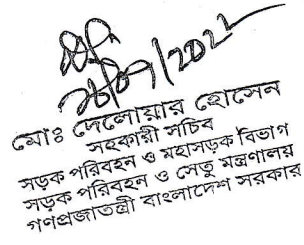 মোঃ দেলোয়ার হোসেন
সহকারী সচিব
সড়ক পরিবহন ও মহাসড়ক বিভাগ
সড়ক পরিবহন ও সেতু মন্ত্রণালয়
গণপ্রজাতন্ত্রী বাংলাদেশ সরকার